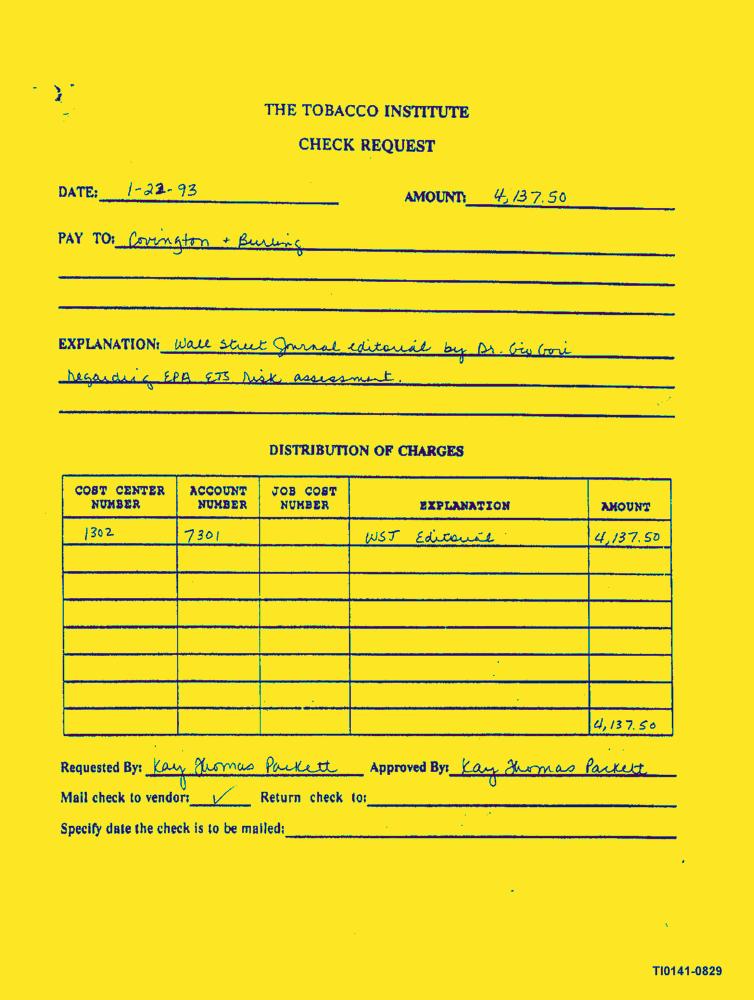 THE TOBACCO INSTITUTE
CHECK REQUEST
DATE: 1-22-93 AMOUNT: 4,137.50
PAY TO: Covington + Burling
EXPLANATION: Wall Street Journal editorial by Dr. Gio Gori
regarding EPA ETS risk assessment.
DISTRIBUTION OF CHARGES
COST CENTER NUMBER ACCOUNT NUMBER JOB COST NUMBER EXPLANATION AMOUNT
1302 7301 WSJ Editorial 4,137.50
4,137.50
Requested By: Kay Thomas Packett Approved By: Kay Thomas Packett
Mail check to vendor: ✓ Return check to:
Specify date the check is to be mailed:
TI0141-0829